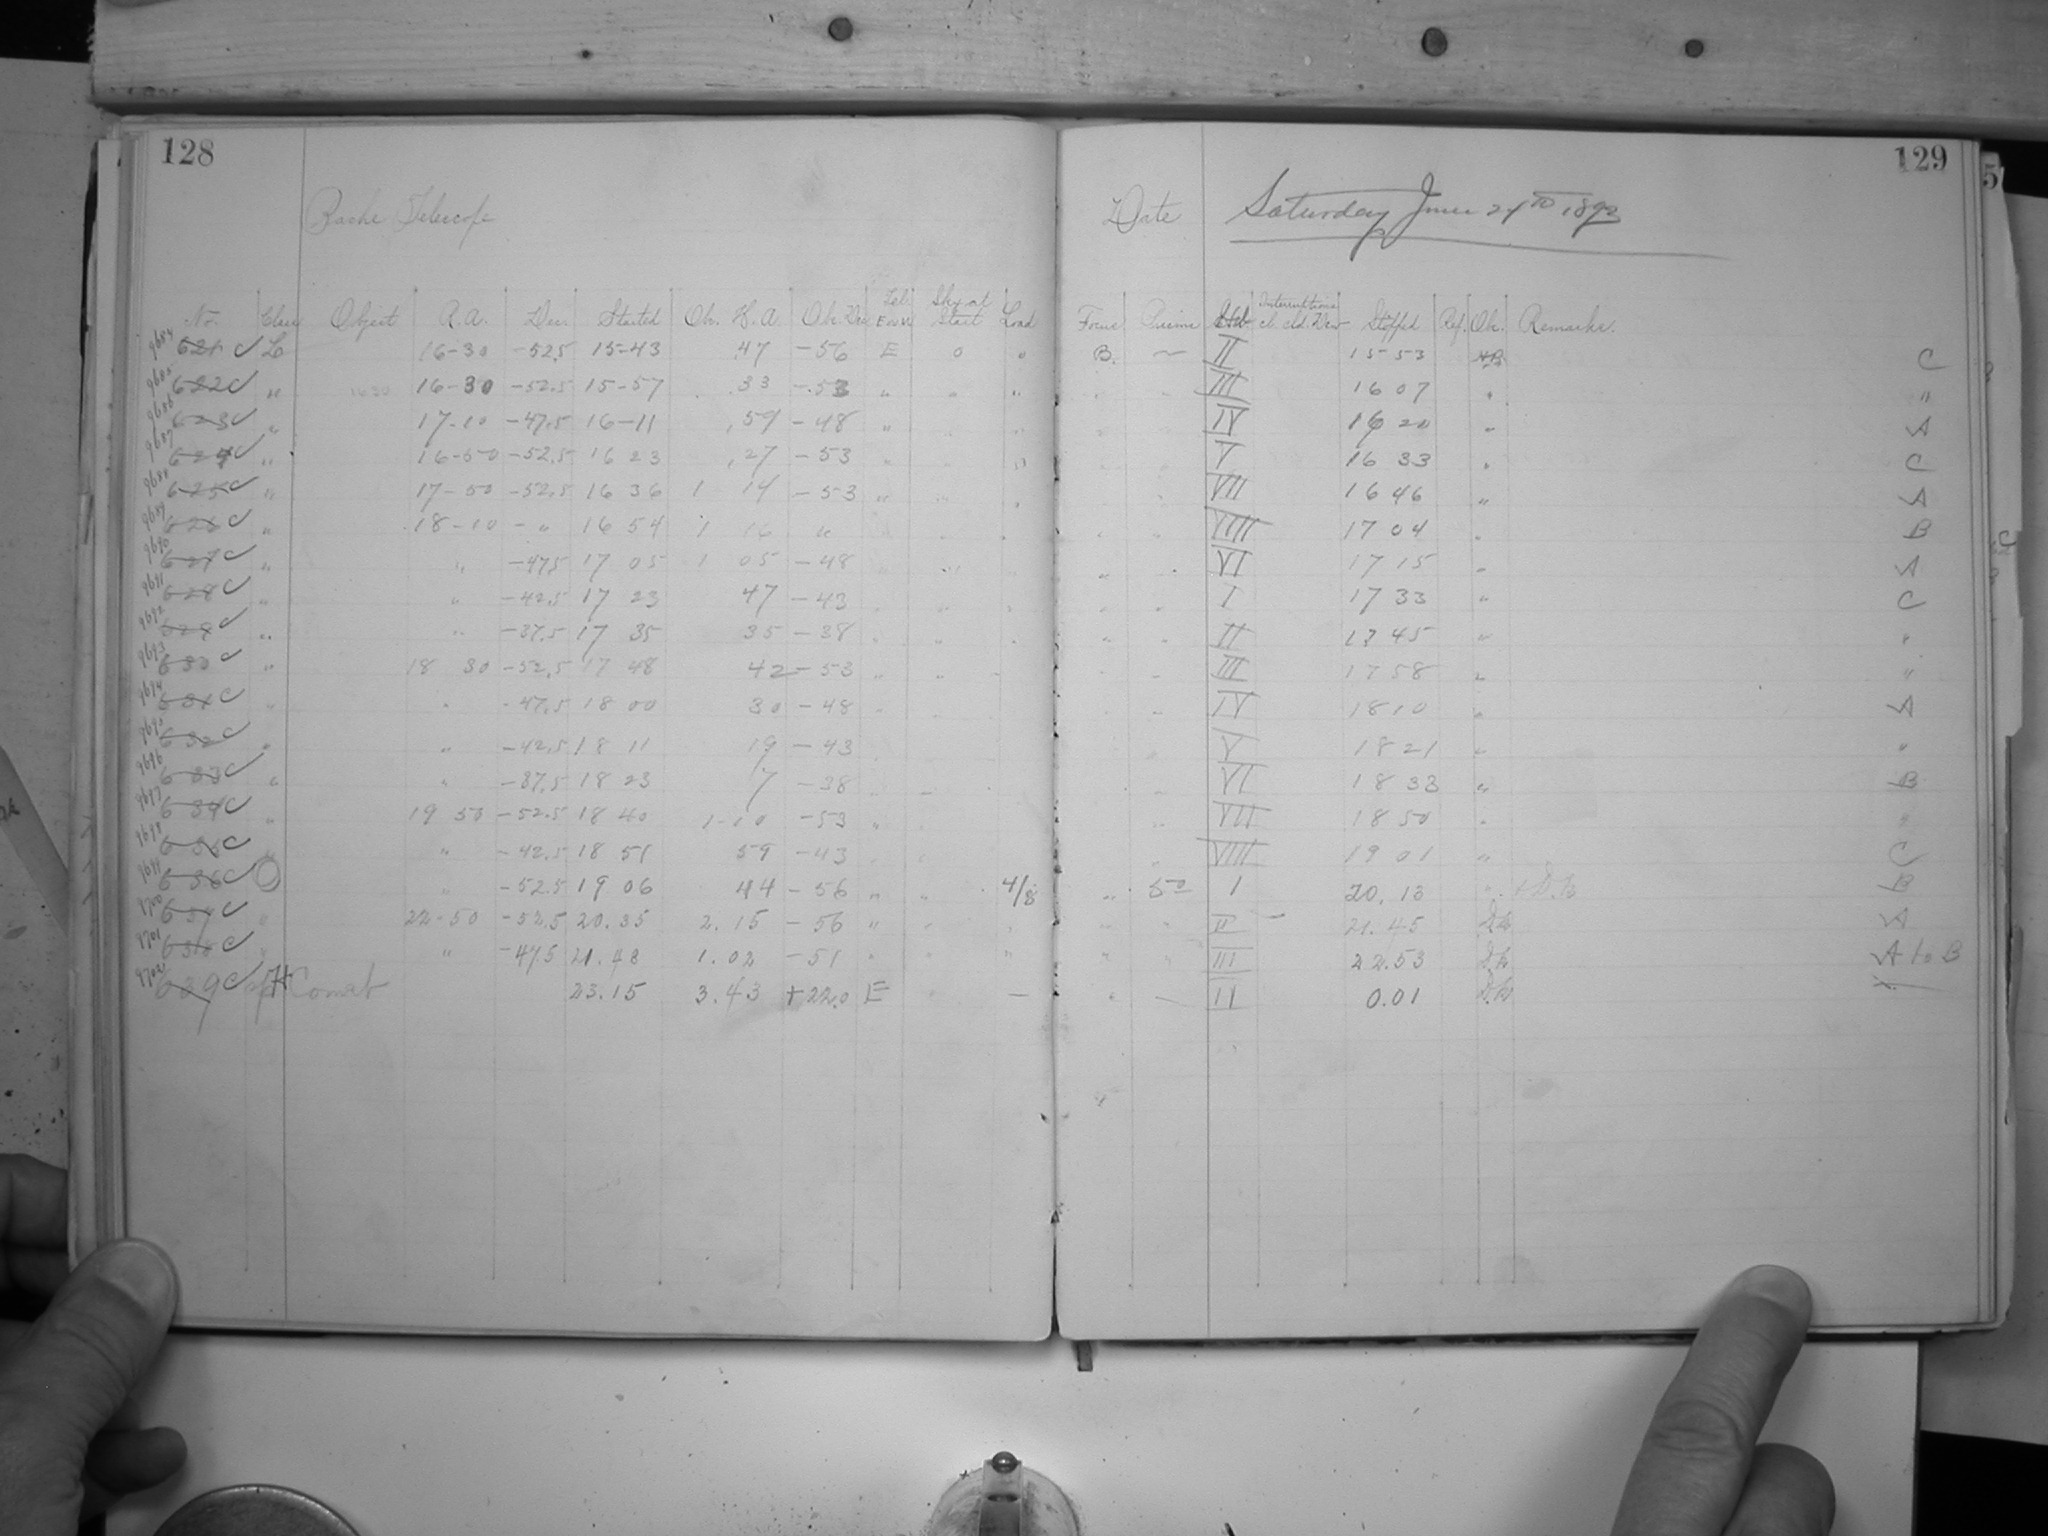 128
129
Bache Telescope Date Saturday June 24TH 1893
No. Class Object R.A. Dec. Started Ob. H.A Ob. Dec Tel. E or W Sky at Start Load Focus Prism Interruptions cl. cld. Dew Stopped Ref. Ob. Remarks.
9684 621 C L 16-30 -52.5 15-43 .47 -56 E 0 0 B. ~ II 15 53 C
9685 622 C " 16-30 -52.5 15-57 .33 -53 " " III 16 07 " "
9686 623 C " 17-10 -47.5 16-11 .59 -48 " IV 16 20 " A
9687 624 C " 16-50 -52.5 16 23 .27 -53 " V 16 33 " C
9688 625 C " 17-50 -52.5 16 36 1 14 -53 " VII 16 46 " A
9689 626 C " 18-10 - " 16 54 1 16 " VIII 17 04 " B
9690 627 C " " -47.5 17 05 1 05 -48 " VI 17 15 " A
9691 628 C " " -42.5 17 23 47 -43 " I 17 33 " C
9692 629 C " " -37.5 17 35 35 -38 " II 17 45 " "
9693 630 C " 18 30 -52.5 17 48 42 -53 " III 17 58 " "
9694 631 C " " -47.5 18 00 30 -48 " IV 18 10 " A
9695 632 C " " -42.5 18 11 19 -43 V 18 21 " "
9696 633 C " " -37.5 18 23 7 -38 VI 18 33 " B
9697 634 C " 19 50 -52.5 18 40 1-10 -53 " VII 18 50 " "
9698 635 C " " -42.5 18 51 59 -43 VIII 19 01 " C
9699 636 C " -52.5 19 06 44 -56 " " 4/8 " 50 I 20.13 " B
9700 637 C " 22-50 -52.5 20.35 2.15 -56 " " " " II - 21.45 A
9701 638 C " " -47.5 21.48 1.02 -51 " " " " " III 22.53 A to B
9702 639 C Comet 23.15 3.43 +22.0 E " — " — II 0.01